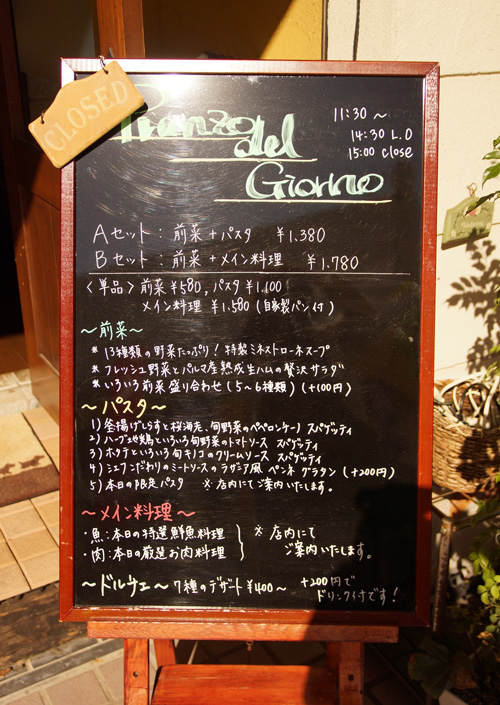 CLOSED
Pranzo
del
Giorno
11:30 ～
14:30 L.O
15:00 close
Aセット： 前菜 + パスタ ¥1.380
Bセット： 前菜 + メイン料理 ¥1.780
〈単品〉前菜 ¥580, パスタ ¥1.100
メイン料理 ¥1.580 (自家製パン付)
～前菜～
＊13種類の野菜たっぷり！特製ミネストローネスープ
＊フレッシュ野菜とパルマ産熟成生ハムの贅沢サラダ
＊いろいろ前菜盛り合わせ (5～6種類) (+100円)
～パスタ～
1) 釜揚げしらすと桜海老、旬野菜のペペロンチーノ スパゲッティ
2) ハーブ地鶏といろいろ旬野菜のトマトソース スパゲッティ
3) ホタテといろいろ旬キノコのクリームソース スパゲッティ
4) シェフこだわりのミートソースのラザニア風 ペンネ グラタン (+200円)
5) 本日の限定パスタ ※店内にてご案内いたします。
～メイン料理～
・魚：本日の特選鮮魚料理
・肉：本日の厳選お肉料理
※ 店内にて
ご案内いたします。
～ドルチェ～ 7種のデザート ¥400～
+200円で
ドリンク付です！